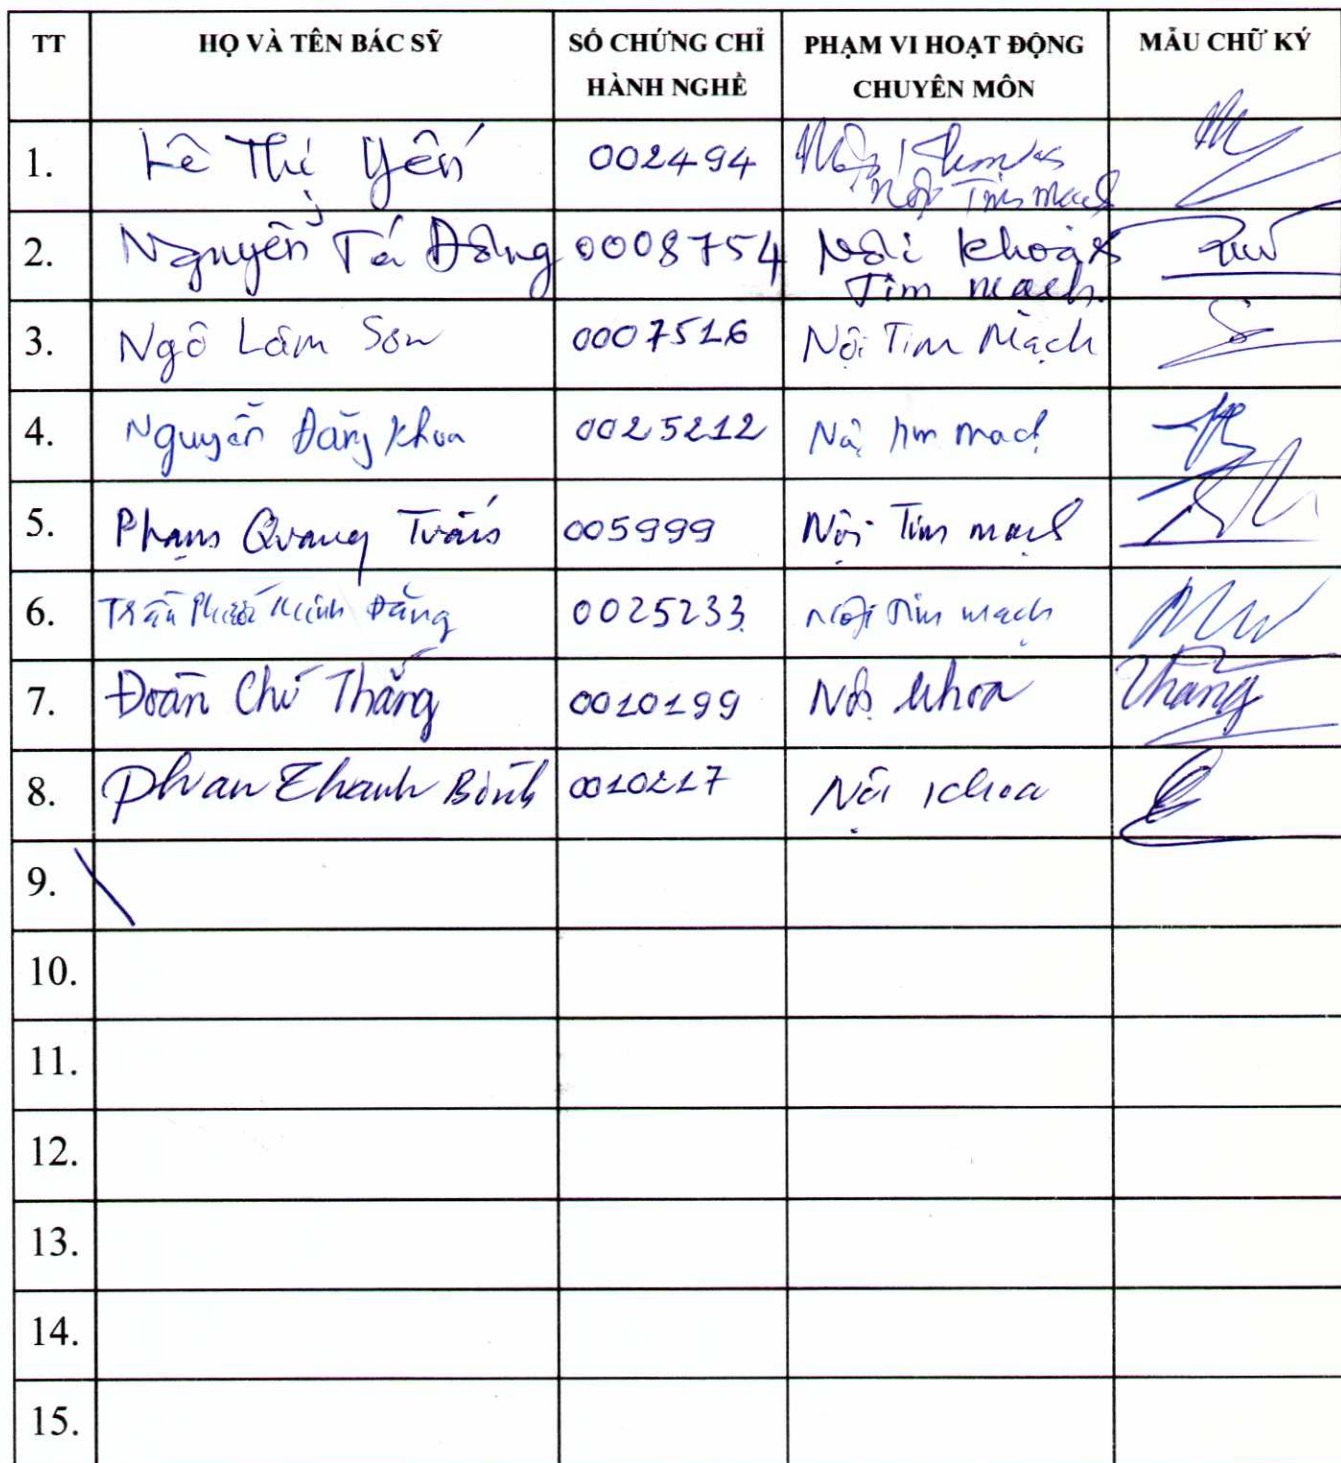 TT HỌ VÀ TÊN BÁC SỸ SỐ CHỨNG CHỈ HÀNH NGHỀ PHẠM VI HOẠT ĐỘNG CHUYÊN MÔN MẪU CHỮ KÝ
1. Lê Thị Yến 002494 Nội Tim mạch
2. Nguyễn Tá Đông 0008754 Nội khoa Tim mạch
3. Ngô Lâm Sơn 0007516 Nội Tim Mạch
4. Nguyễn Đăng Khoa 0025212 Nội tim mạch
5. Phạm Quang Tuấn 005999 Nội Tim mạch
6. Trần Phước Minh Đăng 0025233 Nội Tim mạch
7. Đoàn Chí Thắng 0010199 Nội khoa Thắng
8. Phan Thanh Bính 0010217 Nội khoa
9.
10.
11.
12.
13.
14.
15.